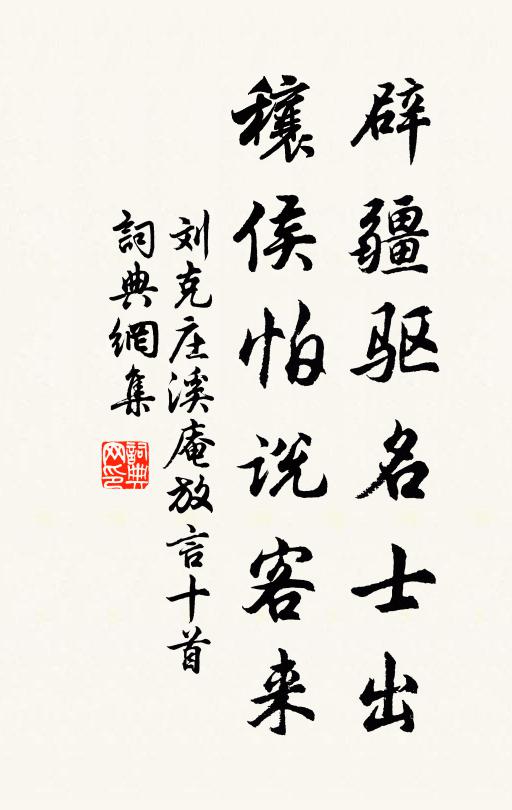 辟疆驱名士出
穰侯怕说客来
刘克庄溪庵放言十首
詞典網集
詞典网印